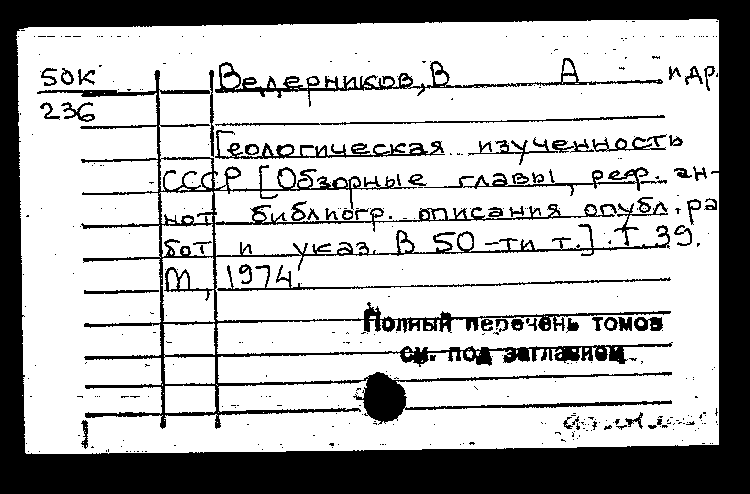 50К Ведерников, В А и др.
236
Геологическая изученность
СССР [Обзорные главы, реф. ан-
нот. библиогр. описания опубл. ра
бот и указ. В 50-ти т.]. Т. 39.
М, 1974.
Полный перечень томов
см. под заглавием